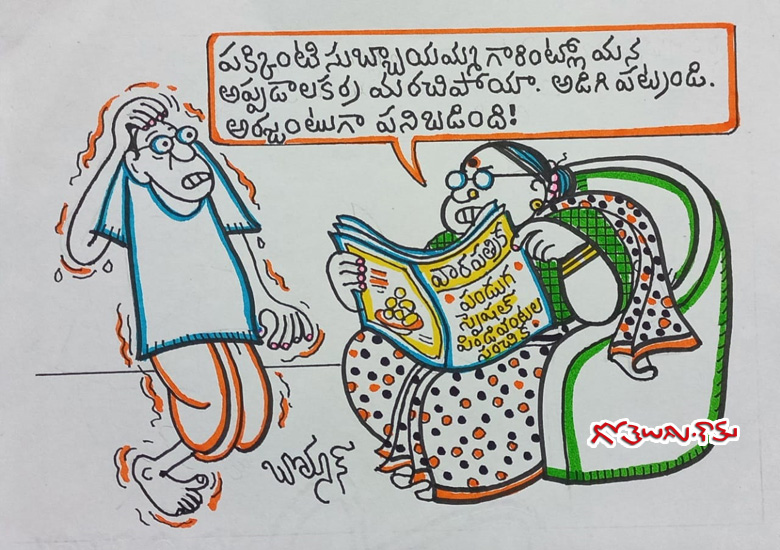 పక్కింటి సుబ్బాయమ్మ గారింట్లో మన
అప్పడాలకర్ర మరచిపోయా. అడిగి పట్రండి.
అర్జంటుగా పనిబడింది!
వారపత్రిక
పండుగ
స్పెషల్
పిండివంటల
సంచిక
గోతెలుగు.కామ్